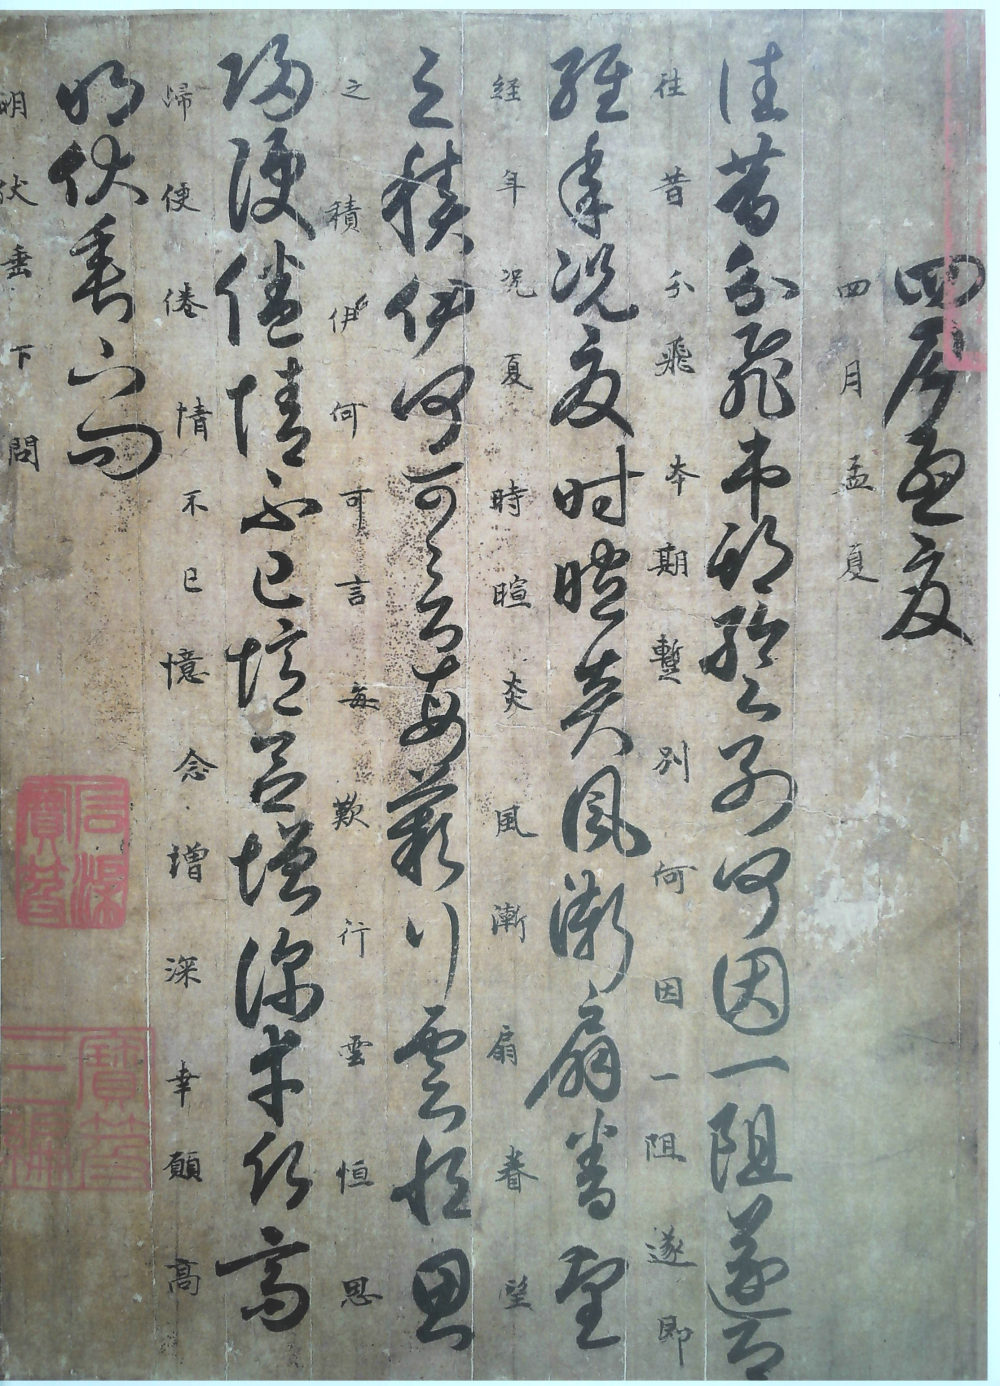 四月孟夏
四月孟夏
往昔分飛本期暫別何因一阻遂即
往昔分飛本期暫別何因一阻遂即
経年况夏時暄炎風漸扇眷望
経年况夏時暄炎風漸扇眷望
之積伊何可言每歎行雲恒思
之積伊何可言每歎行雲恒思
歸便倦情不已憶念增深幸願高
歸便倦情不已憶念增深幸願高
明伏垂下問
明伏垂下問